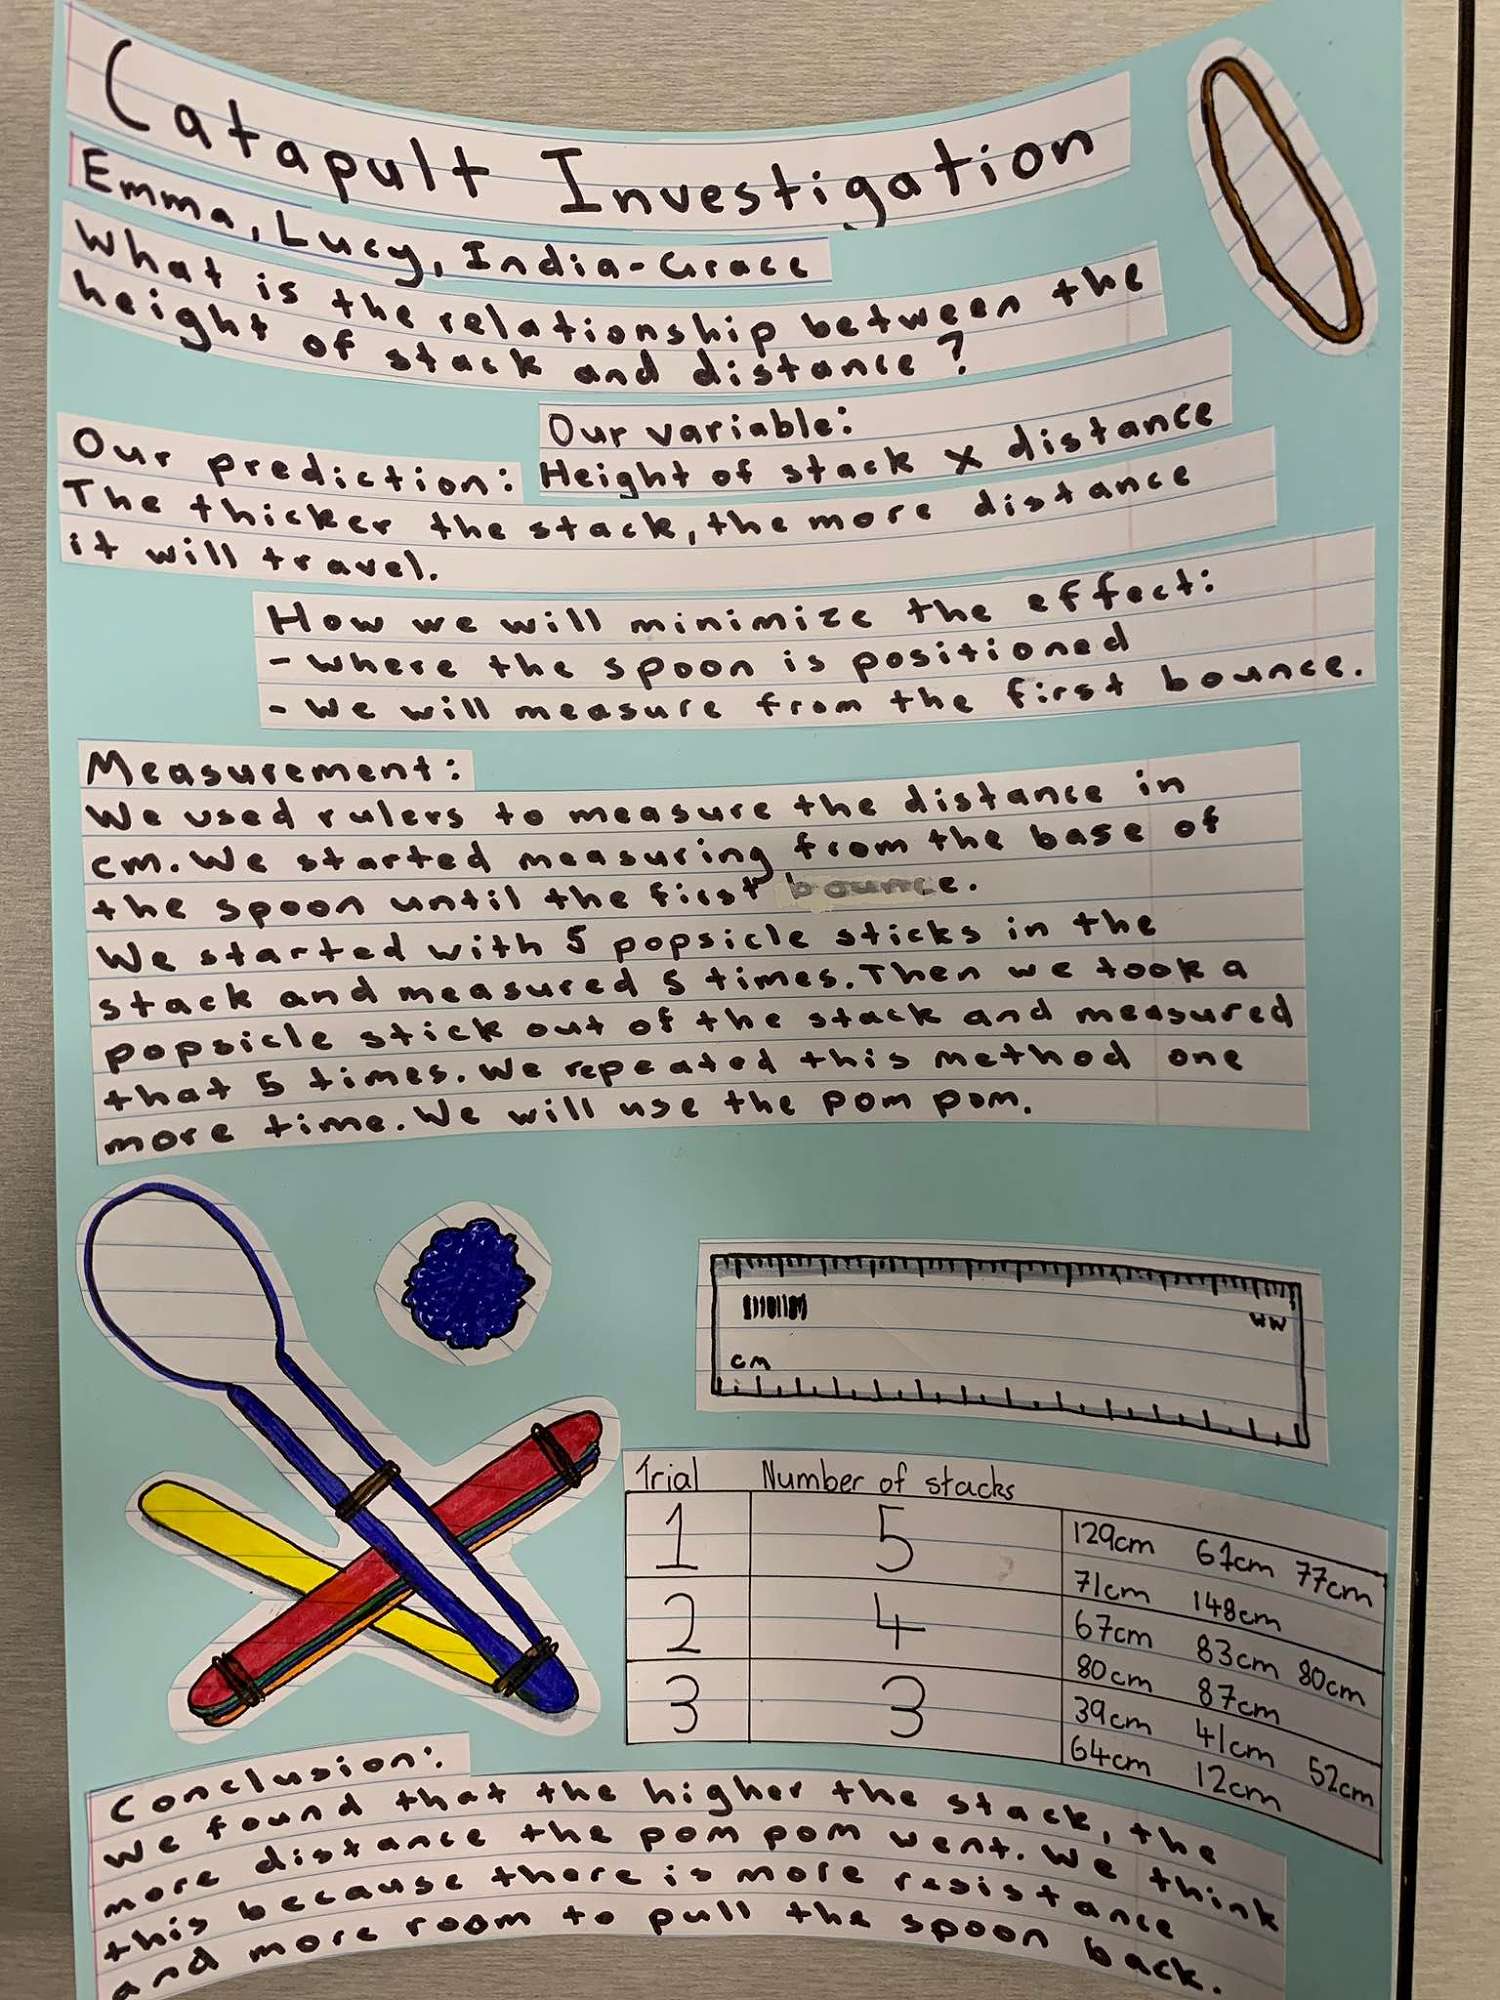 Catapult Investigation
Emma, Lucy, India-Grace
What is the relationship between the
height of stack and distance?
Our variable:
Height of stack x distance
Our prediction:
The thicker the stack, the more distance
it will travel.
How we will minimize the effect:
- where the spoon is positioned
- We will measure from the first bounce.
Measurement:
We used rulers to measure the distance in
cm. We started measuring from the base of
the spoon until the first bounce.
We started with 5 popsicle sticks in the
stack and measured 5 times. Then we took a
popsicle stick out of the stack and measured
that 5 times. We repeated this method one
more time. We will use the pom pom.
cm
Trial Number of stacks
1 5 129cm 77cm
71cm 148cm
2 4 67cm 83cm 80cm
80cm 87cm
3 3 39cm 41cm 52cm
64cm 12cm
Conclusion:
We found that the higher the stack, the
more distance the pom pom went. We think
this because there is more resistance
and more room to pull the spoon back.